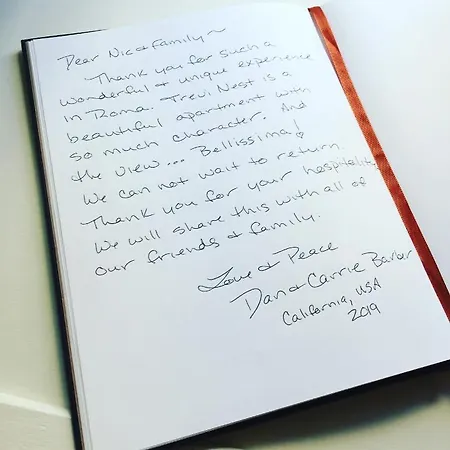 Dear Nic & Family ~
Thank you for such a
wonderful & unique experience
in Roma. Trevi Nest is a
beautiful apartment with
so much character. And
the view... Bellissima!
We can not wait to return.
Thank you for your hospitality,
We will share this with all of
our friends & family.
Love & Peace
Dan & Carrie Barber
California, USA
2019